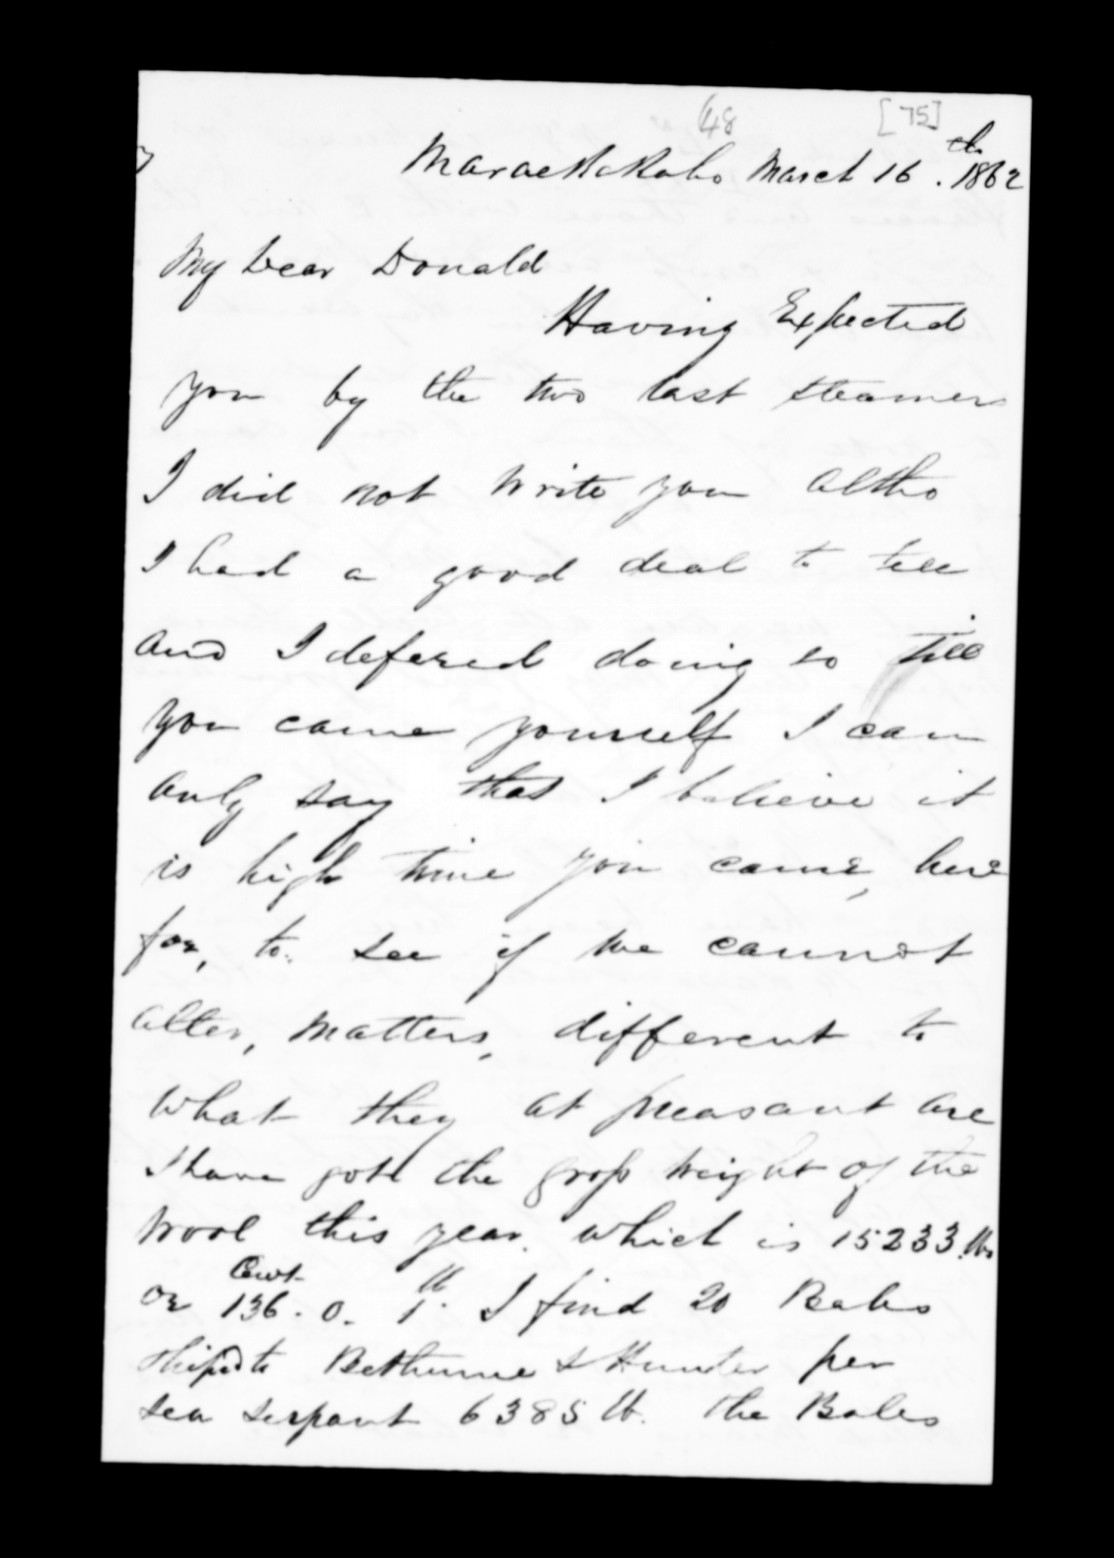 48 [75]
Maraekakaho March 16th. 1862
My Dear Donald
Having Expected
you by the two last steamers
I did not write you altho
I had a good deal to tell
and I defered doing so till
you came yourself I can
only say that I believe it
is high time you came, here
for, to. see if we cannot
alter, matters, different to
what they at preasant are
I have got the gross weight of the
wool this year. which is 15233. lbs
or 136 Cwt. 0. 1 lb. I find 20 Bales
shiped to Bethune & Hunter per
sea serpant 6385 lb. the Bales